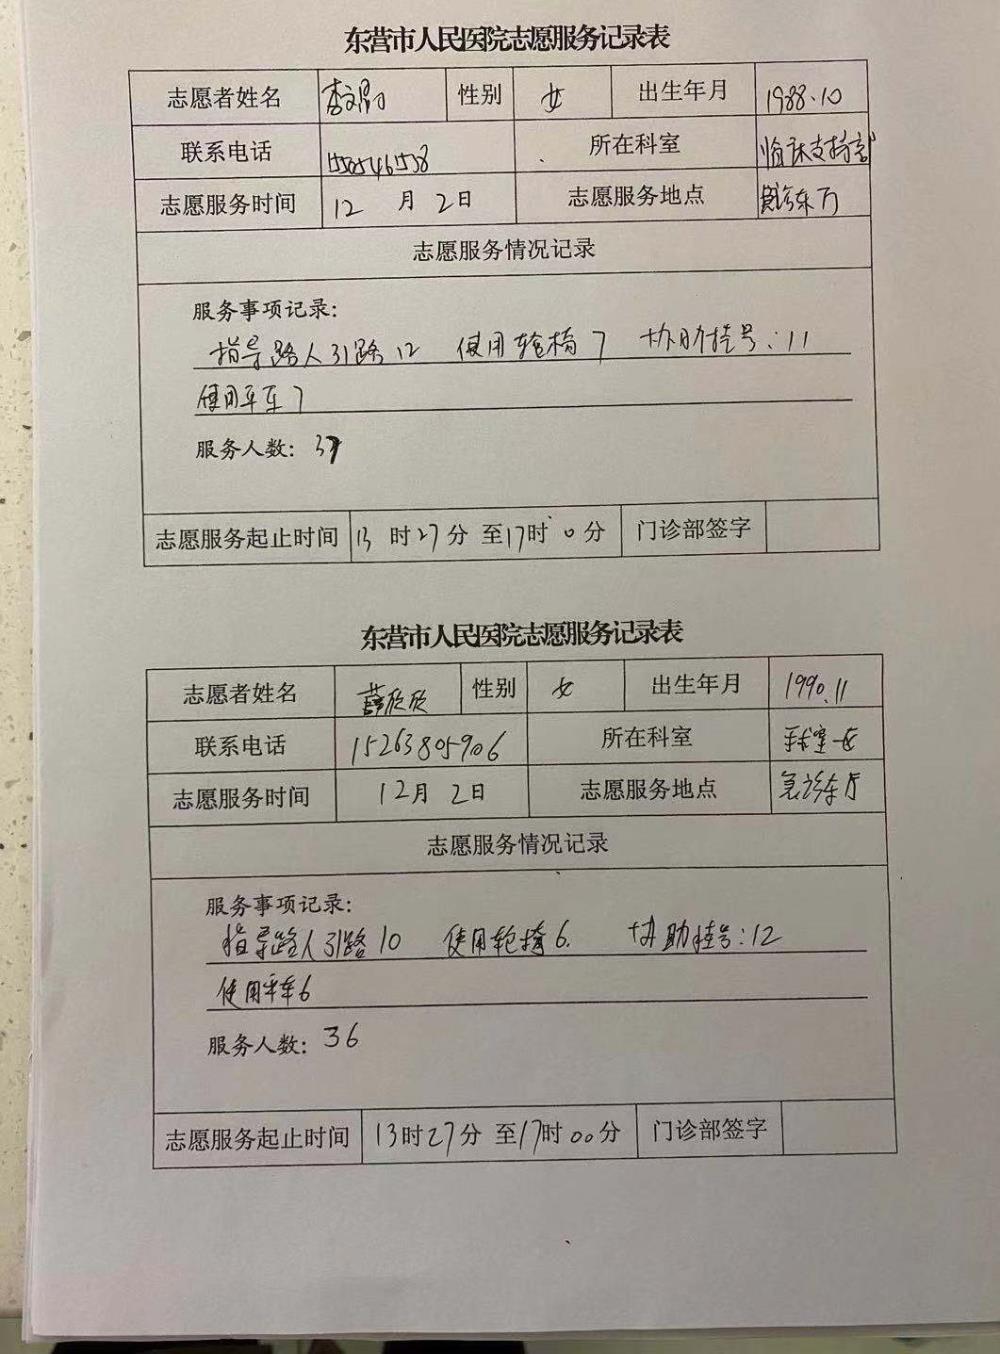 东营市人民医院志愿服务记录表
志愿者姓名 性别 女 出生年月 1988.10
联系电话 所在科室 临床支持
志愿服务时间 12 月 2日 志愿服务地点
志愿服务情况记录
服务事项记录:
指导路人引路 12 使用轮椅 7 协助挂号:11
使用平车 7
服务人数: 37
志愿服务起止时间 13 时27分 至17时 0分 门诊部签字
东营市人民医院志愿服务记录表
志愿者姓名 薛欣欣 性别 女 出生年月 1990.11
联系电话 15263805906 所在科室
志愿服务时间 12月 2日 志愿服务地点 急诊东厅
志愿服务情况记录
服务事项记录:
指导路人引路 10 使用轮椅 6. 协助挂号:12
使用平车6
服务人数: 36
志愿服务起止时间 13时27分 至17时00分 门诊部签字